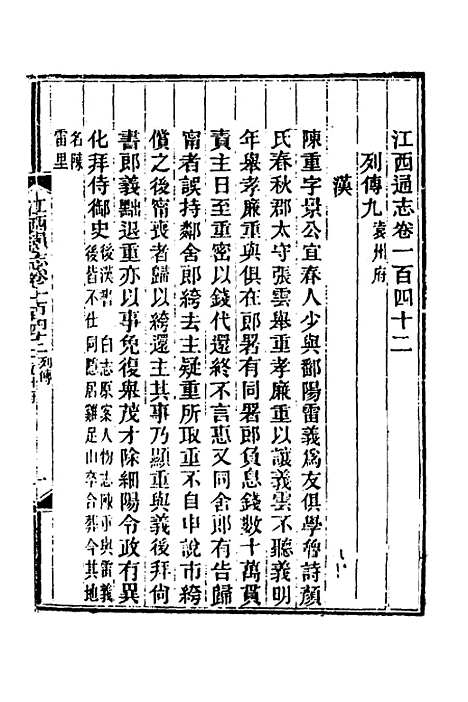 江西通志卷一百四十二
列傳九 袁州府
漢
陳重字景公宜春人少與鄱陽雷義爲友俱學魯詩顏
氏春秋郡太守張雲舉重孝廉重以讓義雲不聽義明
年舉孝廉重與俱在郎署有同署郎負息錢數十萬責
責主日至重密以錢代還終不言惠又同舍郎有告歸
甯者誤持鄰舍郎絝去主疑重所取重不自申說市絝
償之後甯喪者歸以絝還主其事乃顯重與義後拜尙
書郎義黜退重亦以事免復舉茂才除細陽令政有異
化拜侍御史 後漢書 白志原案人物志陳重與雷義
後皆不仕同隱居雞足山卒合葬今其地
名陳
雷里
列傳